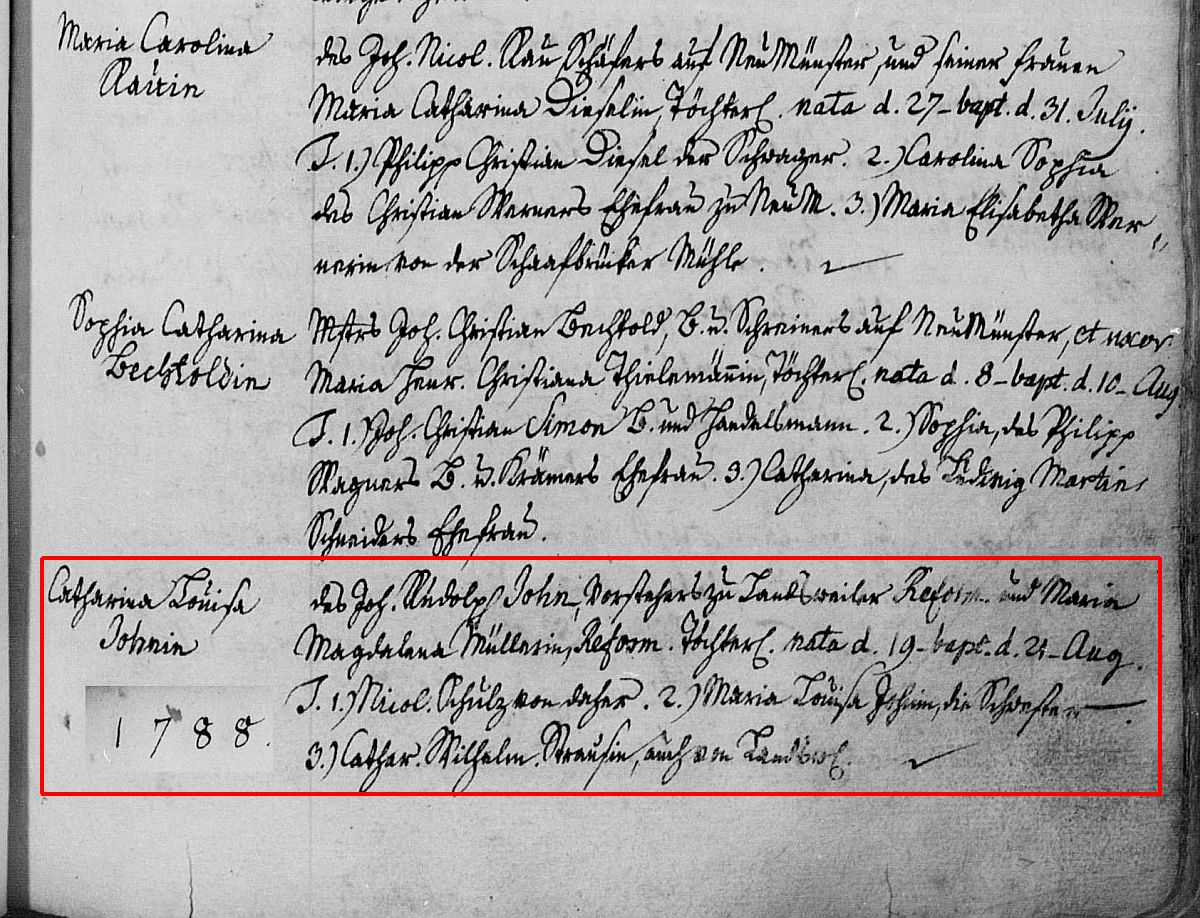 Maria Carolina
Rauin
des Joh. Nicol. Rau Schäfers auf NeuMünster, und seiner Frauen
Maria Catharina Dieselin, Töchterl. nata d. 27 - bapt. d. 31. July.
T. 1.) Philipp Christian Diesel der Schwager. 2.) Carolina Sophia
des Christian Werners Ehefrau zu NeuM. 3.) Maria Elisabetha Wer
nerin von der Schaafbrücker Mühle.
Sophia Catharina
Bechtoldin
Mstrs Joh. Christian Bechtold, B. u. Schreiners auf NeuMünster, et uxor
Maria Henr. Christiana Thielemännin, Töchterl. nata d. 8 - bapt. d. 10 - Aug
T. 1.) Joh. Christian Simon B. und Handelsmann. 2.) Sophia, des Philipp
Wagners B. u. Krämers Ehefrau. 3.) Catharina, des Ludwig Martin
Schneiders Ehefrau.
Catharina Louisa
Johnin
1788.
des Joh. Rudolph John, Vorstehers zu Landsweiler Reform. und Maria
Magdalena Müllerin, Reform. Töchterl. nata d. 19 - bapt. d. 21 - Aug.
T. 1.) Nicol. Schulz von daher. 2.) Maria Louisa Johnin, die Schwester.
3.) Cathar. Wilhelm. Strausin, auch von Landswl.